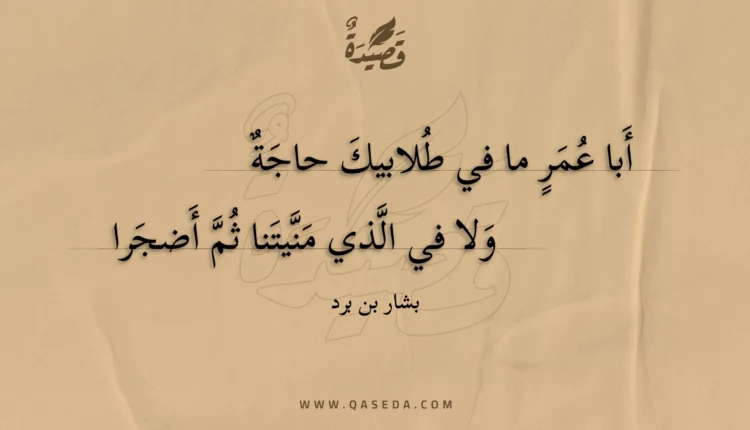 قَصِيْدَةٌ
أَبا عُمَرٍ ما في طُلابيكَ حاجَةٌ
وَلا في الَّذي مَنَّيتَنا ثُمَّ أَضجَرا
بشار بن برد
WWW.QASEDA.COM